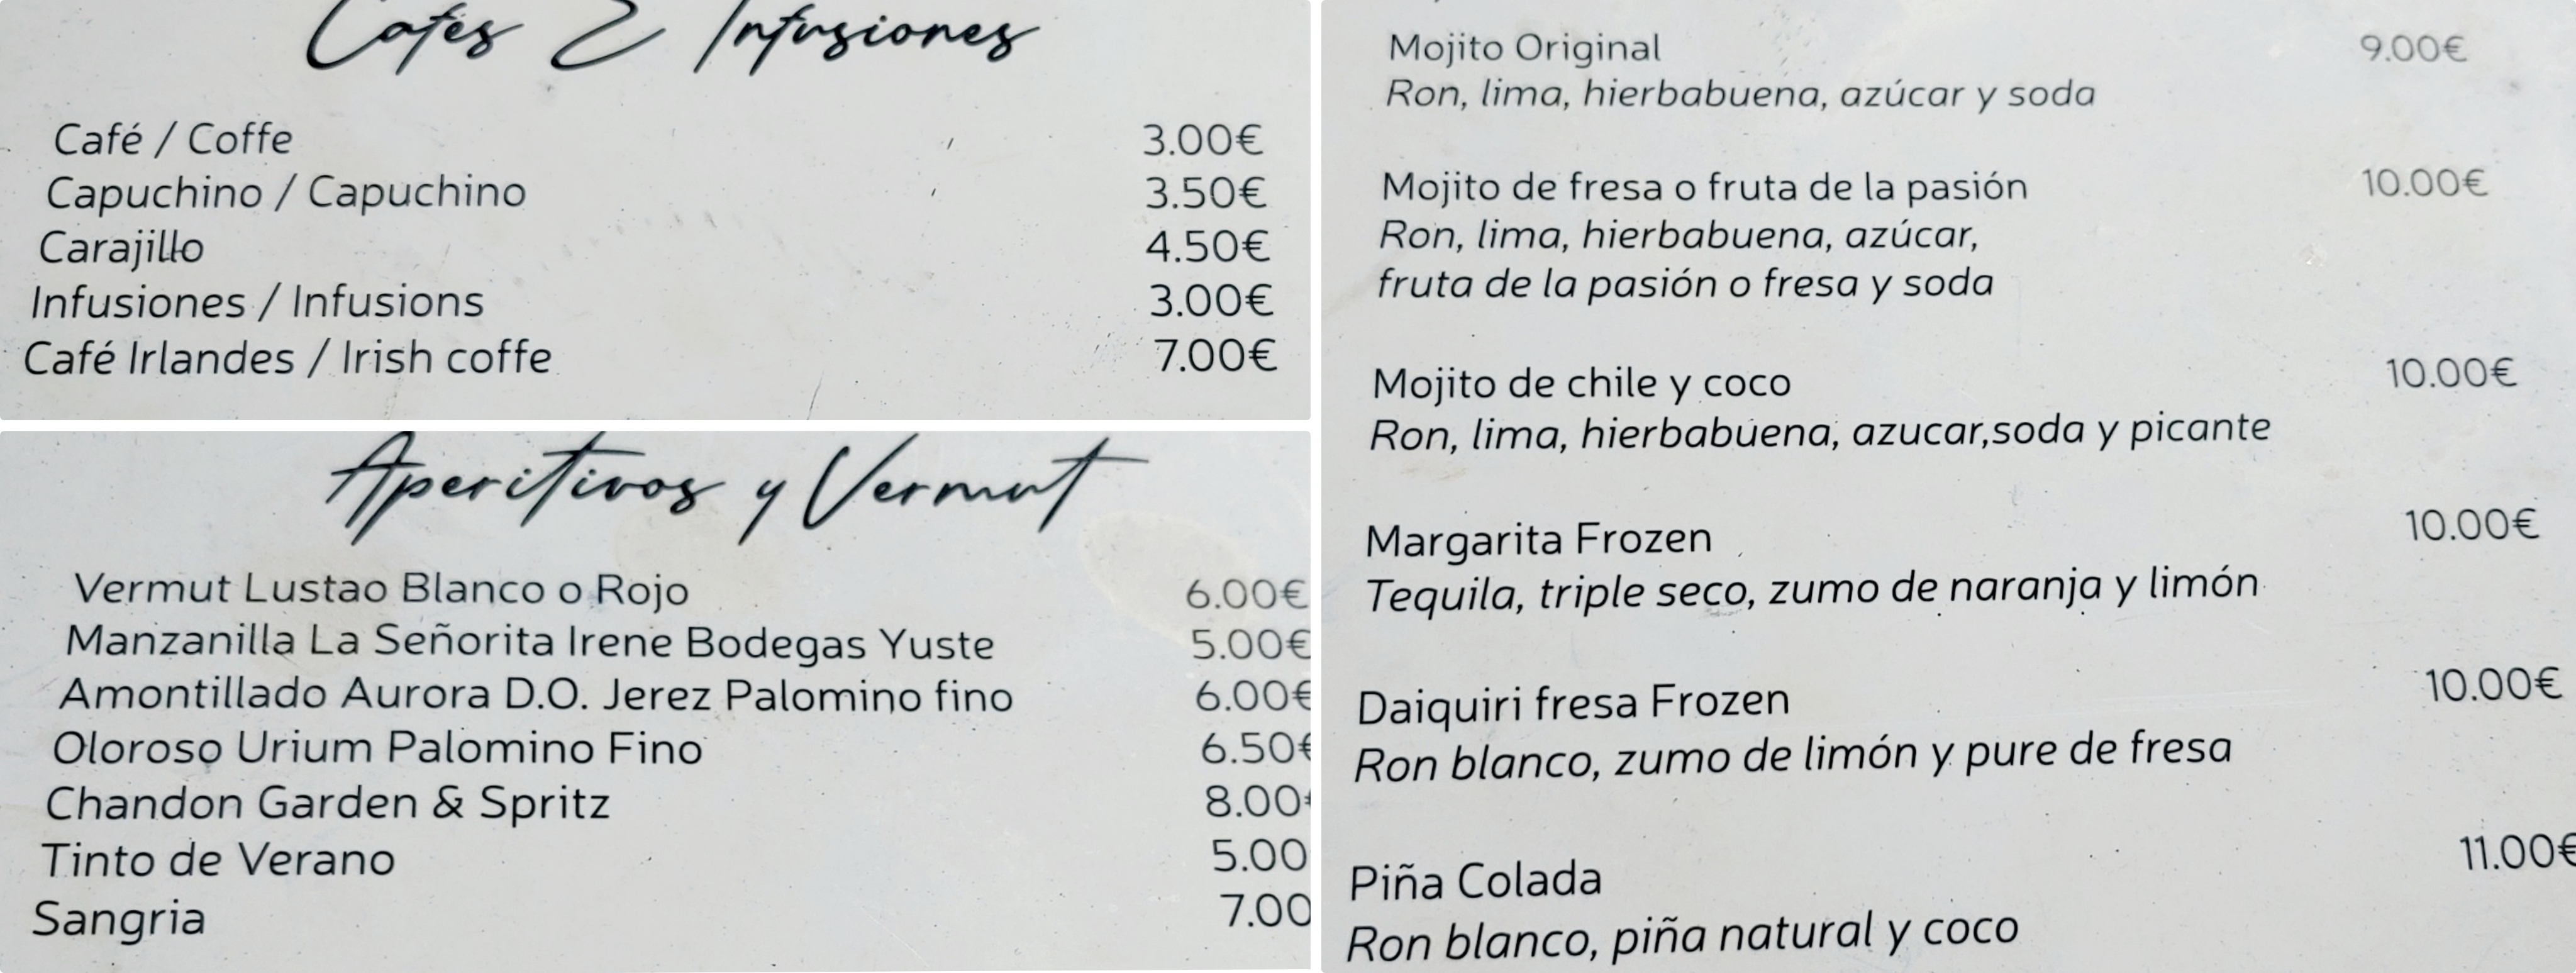 Cafés & Infusiones
Café / Coffe 3.00€
Capuchino / Capuchino 3.50€
Carajillo 4.50€
Infusiones / Infusions 3.00€
Café Irlandes / Irish coffe 7.00€
Aperitivos y Vermut
Vermut Lustao Blanco o Rojo 6.00€
Manzanilla La Señorita Irene Bodegas Yuste 5.00€
Amontillado Aurora D.O. Jerez Palomino fino 6.00€
Oloroso Urium Palomino Fino 6.50€
Chandon Garden & Spritz 8.00€
Tinto de Verano 5.00
Sangria 7.00
Mojito Original 9.00€
Ron, lima, hierbabuena, azúcar y soda
Mojito de fresa o fruta de la pasión 10.00€
Ron, lima, hierbabuena, azúcar,
fruta de la pasión o fresa y soda
Mojito de chile y coco 10.00€
Ron, lima, hierbabuena, azucar,soda y picante
Margarita Frozen 10.00€
Tequila, triple seco, zumo de naranja y limón
Daiquiri fresa Frozen 10.00€
Ron blanco, zumo de limón y pure de fresa
Piña Colada 11.00€
Ron blanco, piña natural y coco